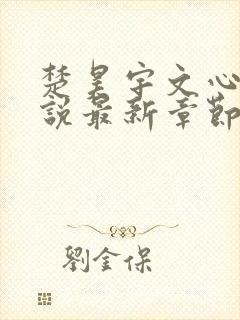 楚昊宇文心
說最新章節
劉金保